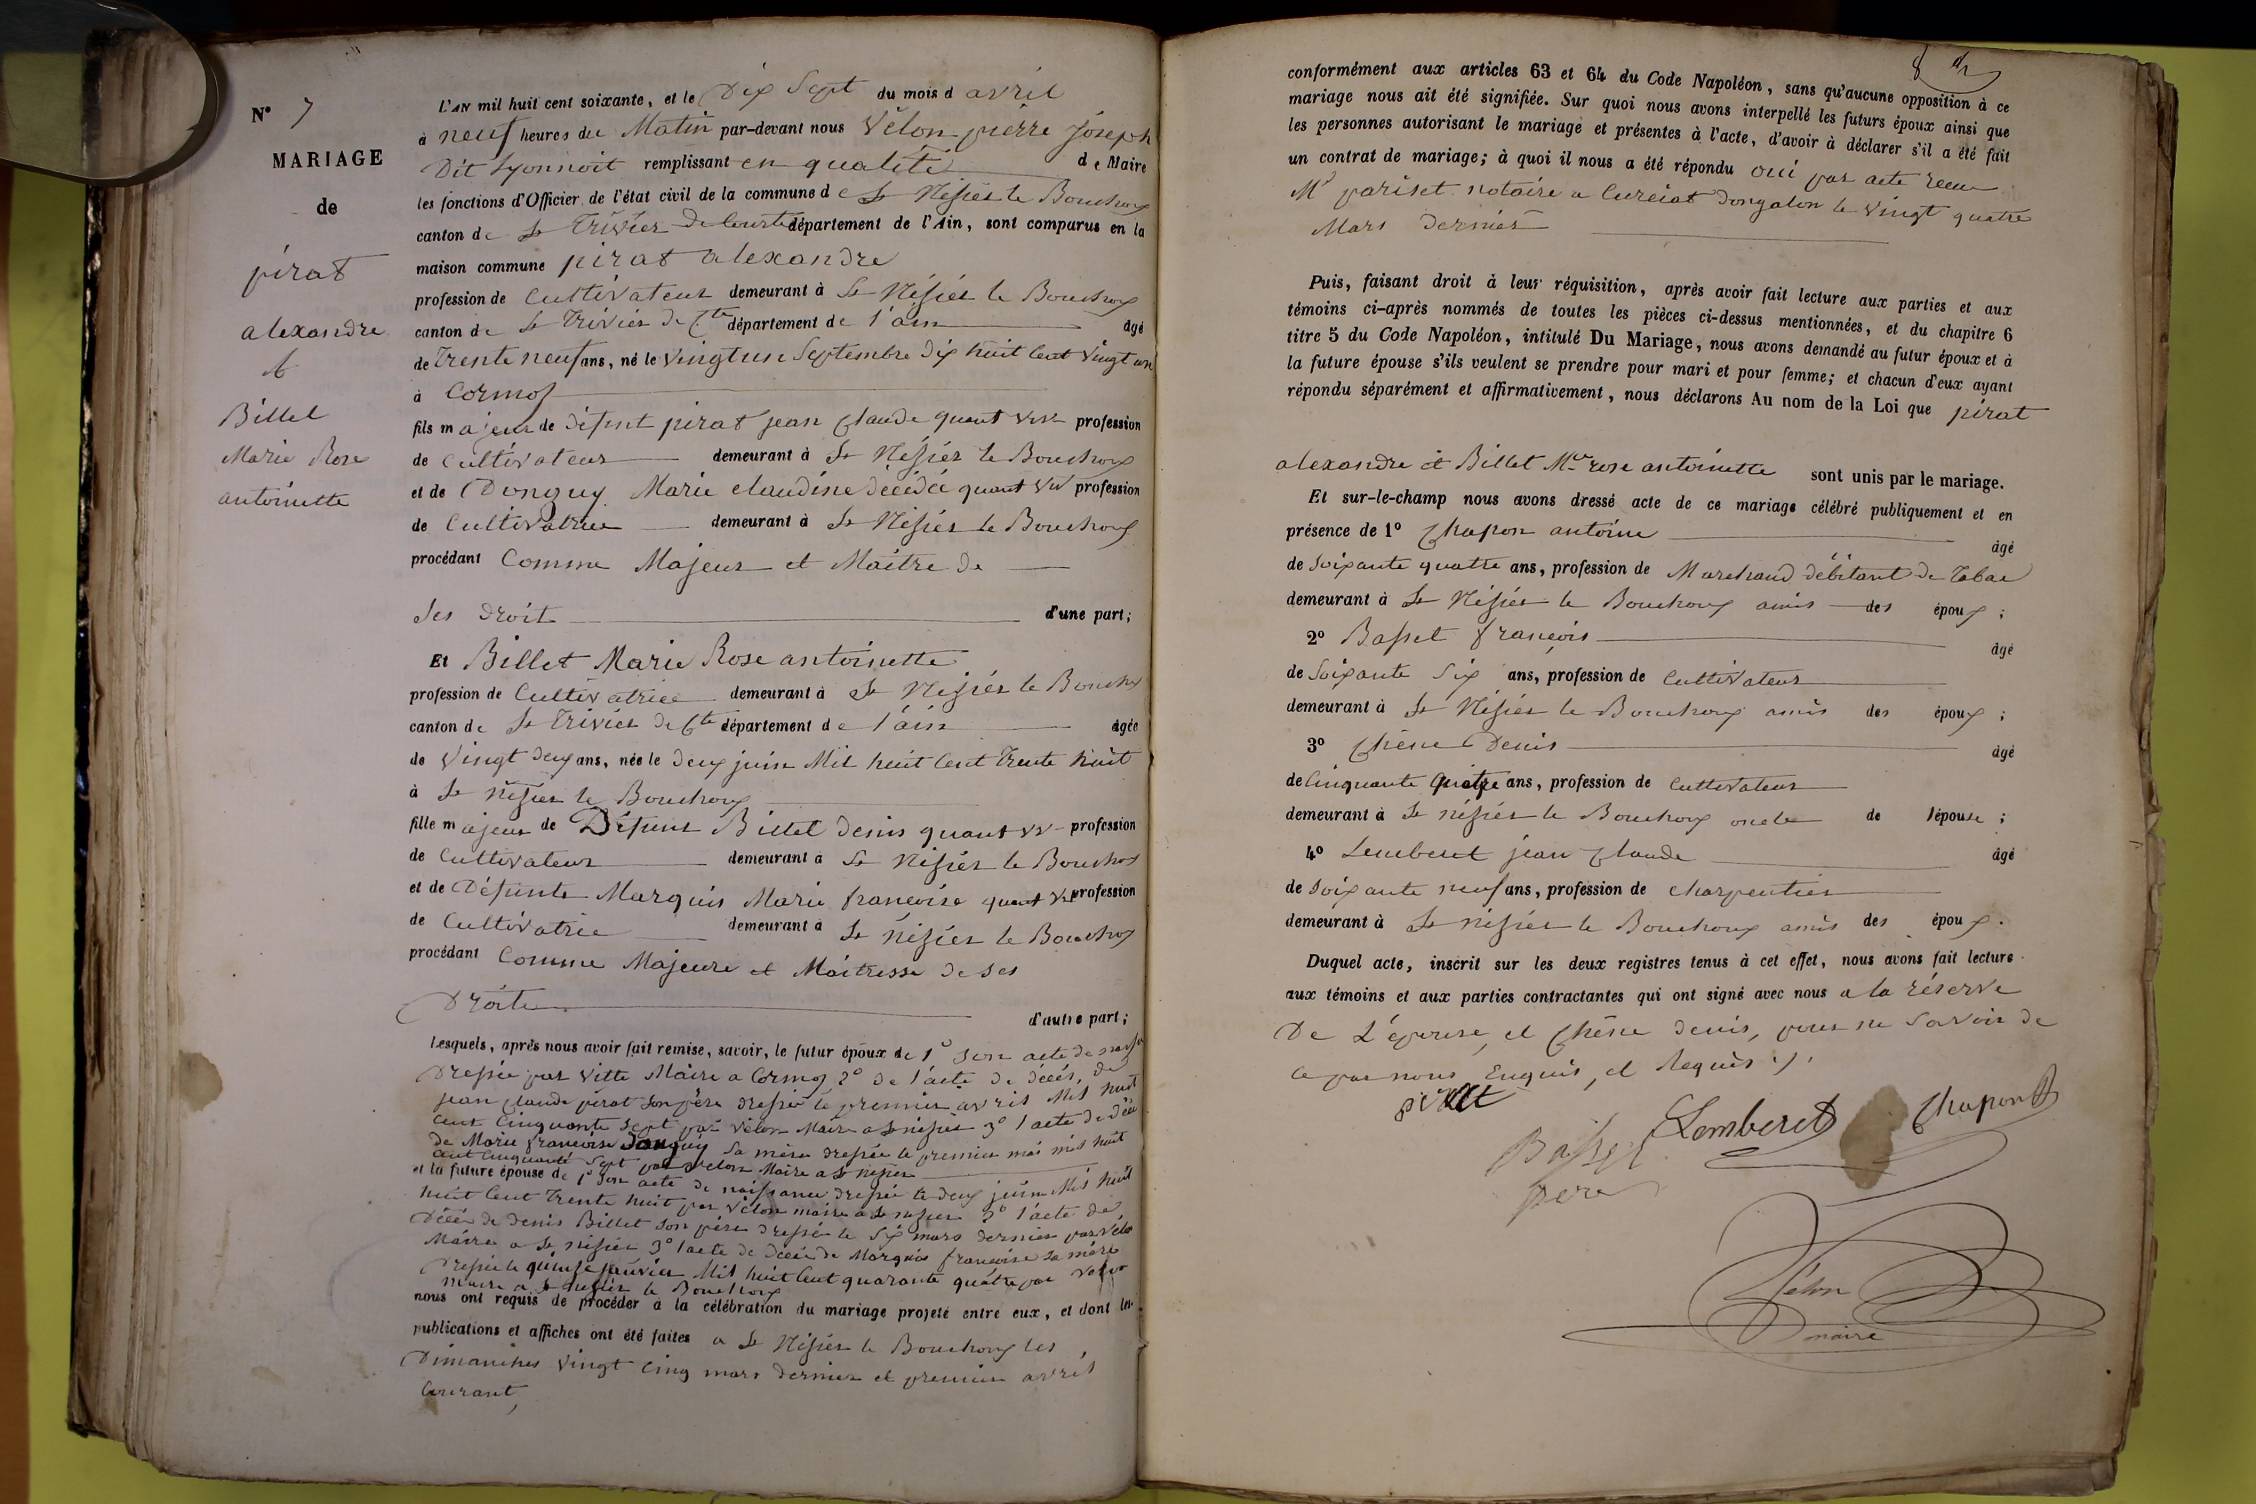 N° 7
MARIAGE
de
pirat
alexandre
et
Billet
Marie Rose
antoinette
L'AN mil huit cent soixante, et le Dix Sept du mois d avril
à neuf heures du Matin par-devant nous Vélon pierre Joseph
Dit Lyonnoit remplissant en qualité de Maire
les fonctions d'Officier de l'état civil de la commune de St Nisier le Bouchoux
canton de St Trivier de Courte département de l'Ain, sont comparus en la
maison commune pirat alexandre
profession de Cultivateur demeurant à St Nisier le Bouchoux
canton de St Trivier de Cte département de l'ain âgé
de Trente neuf ans, né le Vingt un Septembre dix huit Cent Vingt un
à Cormoz
fils majeur de défunt pirat jean Claude quant viv profession
de Cultivateur demeurant à St Nisier le Bouchoux
et de Donguy Marie claudine décédée quant viv profession
de Cultivatrice demeurant à St Nisier le Bouchoux
procédant Comme Majeur et Maître de
Ses Droit d'une part;
Et Billet Marie Rose antoinette
profession de Cultivatrice demeurant à St Nisier le Bouchoux
canton de St Trivier de Cte département de l'ain âgée
de Vingt deux ans, née le deux juin Mil huit Cent Trente huit
à St nisier le Bouchoux
fille majeur de Défunt Billet denis quant viv profession
de Cultivateur demeurant à St Nisier le Bouchoux
et de Défunte Marquis Marie francoise quant viv profession
de Cultivatrice demeurant à St nisier le Bouchoux
procédant Comme Majeure et Maitresse de ses
Droits d'autre part;
Lesquels, après nous avoir fait remise, savoir, le futur époux de 1° Son acte de naiss
Dressée par Vitte Maire a Cormoz 2° de l'acte de décés, de
jean Claude pirat Son père dressée le premier avril Mil huit
Cent Cinquante Sept par Vélon Maire a St nisier 3° l'acte de décé
de Marie francoise Donguy Sa mère dressée le premier mai mil huit
Cent Cinquante Sept par Velon Maire a St nisier
et la future épouse de 1° Son acte de naissance dressée le deux juin Mil huit
huit Cent Trente huit par Vélon maire a St nisier 2° l'acte de
Décé de denis Billet Son père dressée le Six mars dernier par Vélon
Maire a St nisier 3° l'acte de décé de Marquis francoise Sa mère
Dressée le quinze janvier Mil huit Cent quarante quatre par Velon
Maire a St nisier le Bouchoux
nous ont requis de procéder à la célébration du mariage projeté entre eux, et dont les
publications et affiches ont été faites a St Nisier le Bouchoux les
Dimanches Vingt Cinq mars dernier et premier avril
Courant,
conformément aux articles 63 et 64 du Code Napoléon, sans qu'aucune opposition à ce
mariage nous ait été signifiée. Sur quoi nous avons interpellé les futurs époux ainsi que
les personnes autorisant le mariage et présentes à l'acte, d'avoir à déclarer s'il a été fait
un contrat de mariage; à quoi il nous a été répondu oui par acte recu
Me pariset notaire a Curciat dongalon le Vingt quatre
Mars dernier
Puis, faisant droit à leur réquisition, après avoir fait lecture aux parties et aux
témoins ci-après nommés de toutes les pièces ci-dessus mentionnées, et du chapitre 6
titre 5 du Code Napoléon, intitulé Du Mariage, nous avons demandé au futur époux et à
la future épouse s'ils veulent se prendre pour mari et pour femme; et chacun d'eux ayant
répondu séparément et affirmativement, nous déclarons Au nom de la Loi que pirat
alexandre et Billet Mie rose antoinette sont unis par le mariage.
Et sur-le-champ nous avons dressé acte de ce mariage célébré publiquement et en
présence de 1° Chapon antoine âgé
de Soixante quatre ans, profession de Marchand débitant de Tabac
demeurant à St Nisier le Bouchoux amis des époux ;
2° Basset francois âgé
de Soixante Six ans, profession de Cultivateur
demeurant à St Nisier le Bouchoux amis des époux ;
3° Chêne Denis âgé
de Cinquante quatre ans, profession de Cultivateur
demeurant à St nisier le Bouchoux oncle de lépouse ;
4° Lemberet jean Claude âgé
de Soixante neuf ans, profession de charpentier
demeurant à St nisier le Bouchoux amis des époux.
Duquel acte, inscrit sur les deux registres tenus à cet effet, nous avons fait lecture
aux témoins et aux parties contractantes qui ont signé avec nous a la réserve
De L'épouse, et Chêne denis, pour ne Savoir de
ce par nous Enquis, et Requis ./.
pirat
Basset
pere
Lemberet
Chapon
Vélon
maire